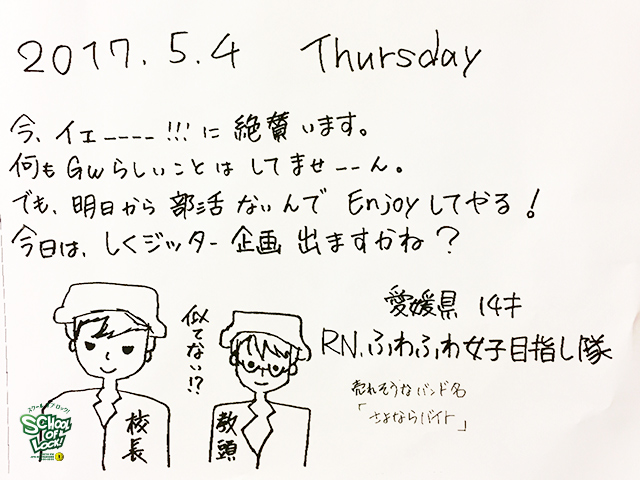 2017.5.4 Thursday
今、イェ----!!!に絶賛います。
何もGWらしいことはしてませーーん。
でも、明日から部活ないんでEnjoyしてやる!
今日は、しくジッター企画出ますかね?
愛媛県 14才
RN.ふわふわ女子目指し隊
売れそうなバンド名
「さよならバイト」
似てない!?
校長
教頭
スクールオブロック!
SCHOOL
OF
LOCK!